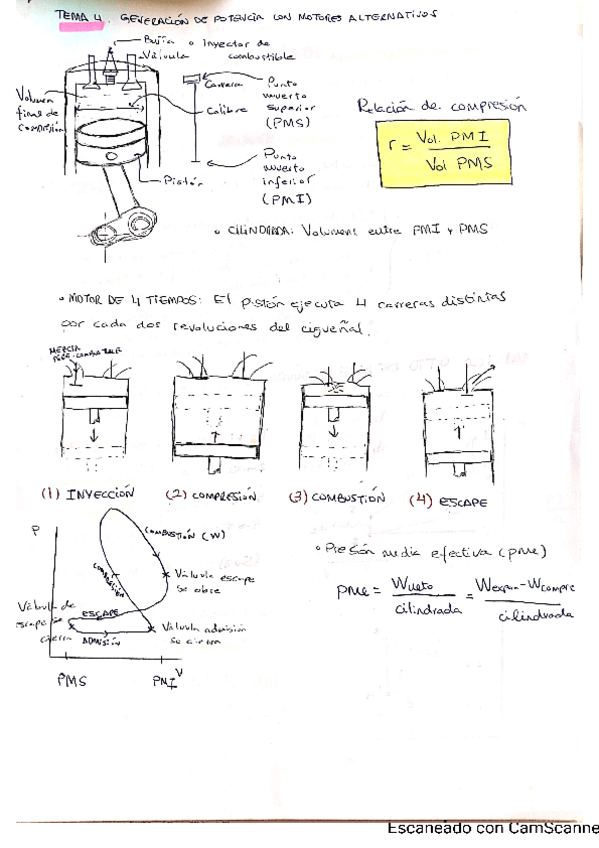 TEMA 4. GENERACIÓN DE POTENCIA CON MOTORES ALTERNATIVOS
Bujía o Inyector de
combustible
Válvula
Volumen
final de
compresión
Carrera
Calibre
Pistón
Punto
muerto
superior
(PMS)
Punto
muerto
inferior
(PMI)
Relación de compresión
r = Vol. PMI
Vol PMS
• CILINDRADA: Volumen entre PMI y PMS
• MOTOR DE 4 TIEMPOS: El pistón ejecuta 4 carreras distintas
por cada dos revoluciones del cigueñal.
MEZCLA
(1) INYECCIÓN (2) COMPRESIÓN (3) COMBUSTIÓN (4) ESCAPE
P
COMBUSTIÓN (W)
COMPRESIÓN
Válvula escape
se abre
Válvula de
escape se
cierra
ESCAPE
ADMISIÓN
Válvula admisión
se cierra
PMS PMI V
• Presión media efectiva (pme)
pme = Wneto = Wexpan - Wcompre
cilindrada cilindrada
Escaneado con CamScanne